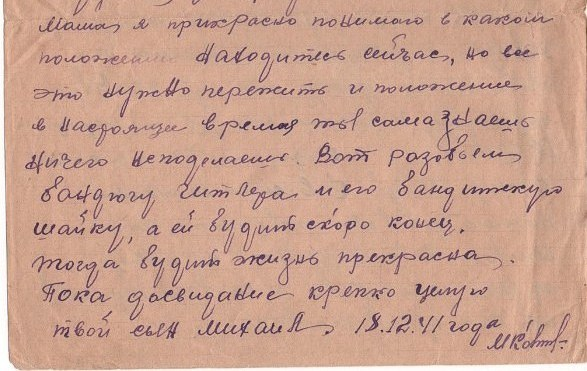 Мама я прикрасно понимаю в какой
положении находитесь сейчас, но все
это нужно пережить и положение
в настоящее время ты сама знаешь
ничего неподелаешь. Вот розобьем
бандюгу гитлера и его бандитскую
шайку, а ей будит скоро конец.
тогда будит жизнь прекрасна.
Пока досвидание крепко целую
твой сын михаил. 18.12.41 года